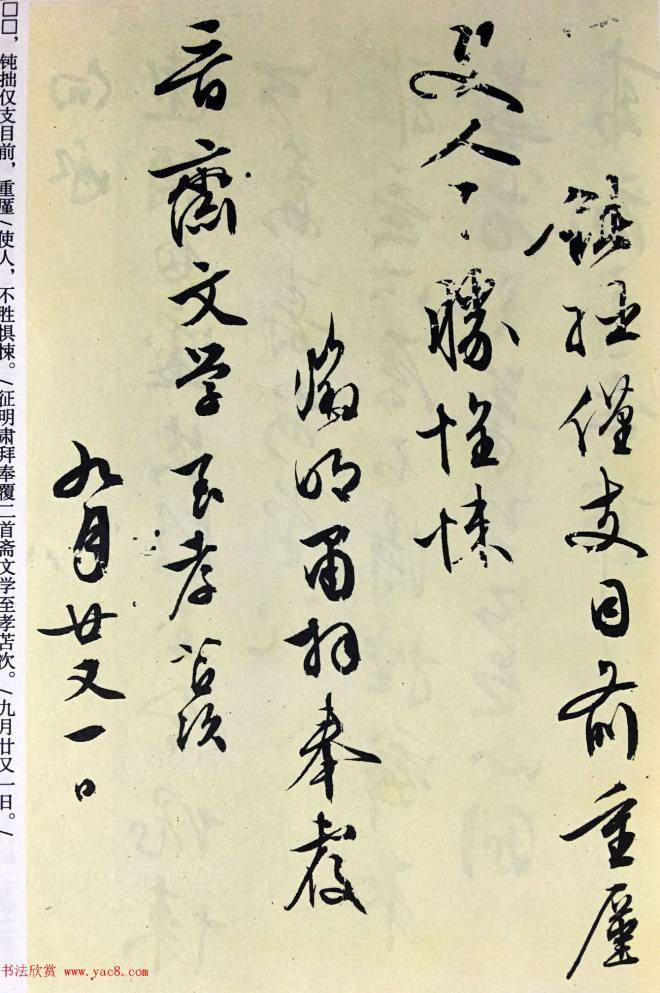 鈍拙僅支目前重厪
使人不勝悚
徵明肅拜奉覆
首齋文学至孝苫次
九月廿又一日
□□，钝拙仅支目前，重厪/使人，不胜惧悚。/征明肃拜奉覆二首斋文学至孝苫次。/九月廿又一日。/
书法欣赏 www.yac8.com